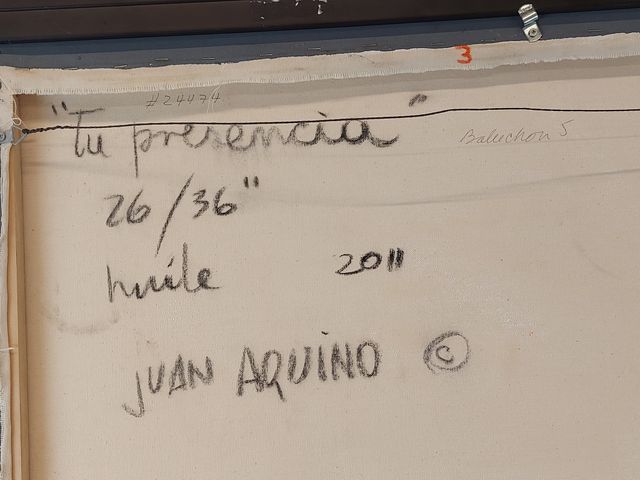 3
#24474
"Tu presencia"
Baluchon 5
26/36"
huile 2011
JUAN AQUINO ©